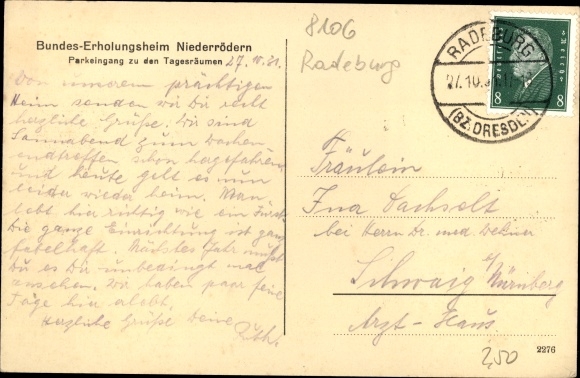 Bundes-Erholungsheim Niederrödern
Parkeingang zu den Tagesräumen 27.10.31.
Von unserem prächtigen
Heim senden wir Dir recht
herzliche Grüße. Wir sind
Sonnabend zum Wochen-
endtreffen schon hergefahren
und heute geht es nun
leider wieder heim. Man
lebt hier richtig wie ein
Die ganze Einrichtung ist ganz
fabelhaft. Nächstes Jahr mußt
Du es Dir unbedingt mal
ansehen. Wir haben paar feine
Tage hier erlebt.
Herzliche Grüße Deine
Ruth.
8106
Radeburg
RADEBURG
27.10.
(BZ. DRESDEN)
8 8
Fräulein
Ina Dachselt
bei Herrn Dr. med.
Schwaig b/Nürnberg
Arzt-Haus.
2276
2,50